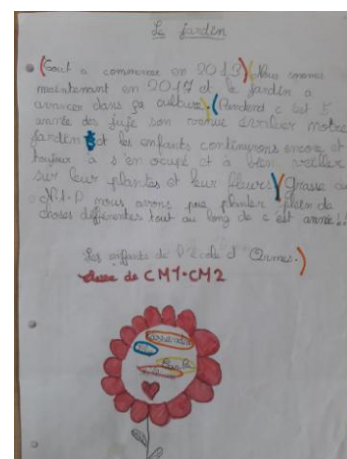 Le jardin
(Tout a commencer en 2013) (Nous sommes
maintenant en 2017 et le jardin a
avancer dans ça culture. (Pendent c est 5
année des sujé son venue arriver notre
jardin et les enfants continurons encore et
toujour a s en ocupé et à bien veiller
sur leur plantes et leur fleurs) (Grasse au
N.A.P nous avons pue planter plein de
choses différentes tout au long de c est année !!
Les enfants de l'école d'Ormes.)
classe de CM1-CM2